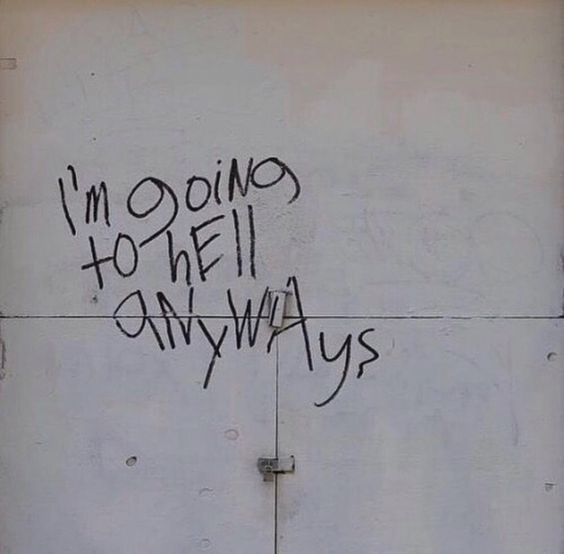 I'm goiNg
to hEll
aNyWAys